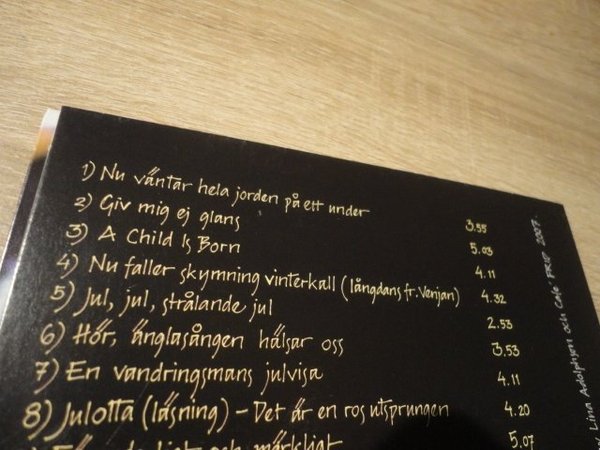 1) Nu väntar hela jorden på ett under 3.55
2) Giv mig ej glans 5.03
3) A Child Is Born 4.11
4) Nu faller skymning vinterkall (långdans fr. Venjan) 4.32
5) Jul, jul, strålande jul 2.53
6) Hör, änglasången hälsar oss 3.53
7) En vandringsmans julvisa 4.11
8) Julotta (läsning) - Det är en ros utsprungen 4.20
och märkligt 5.07
Lina Adolphson och Cafe 2007.